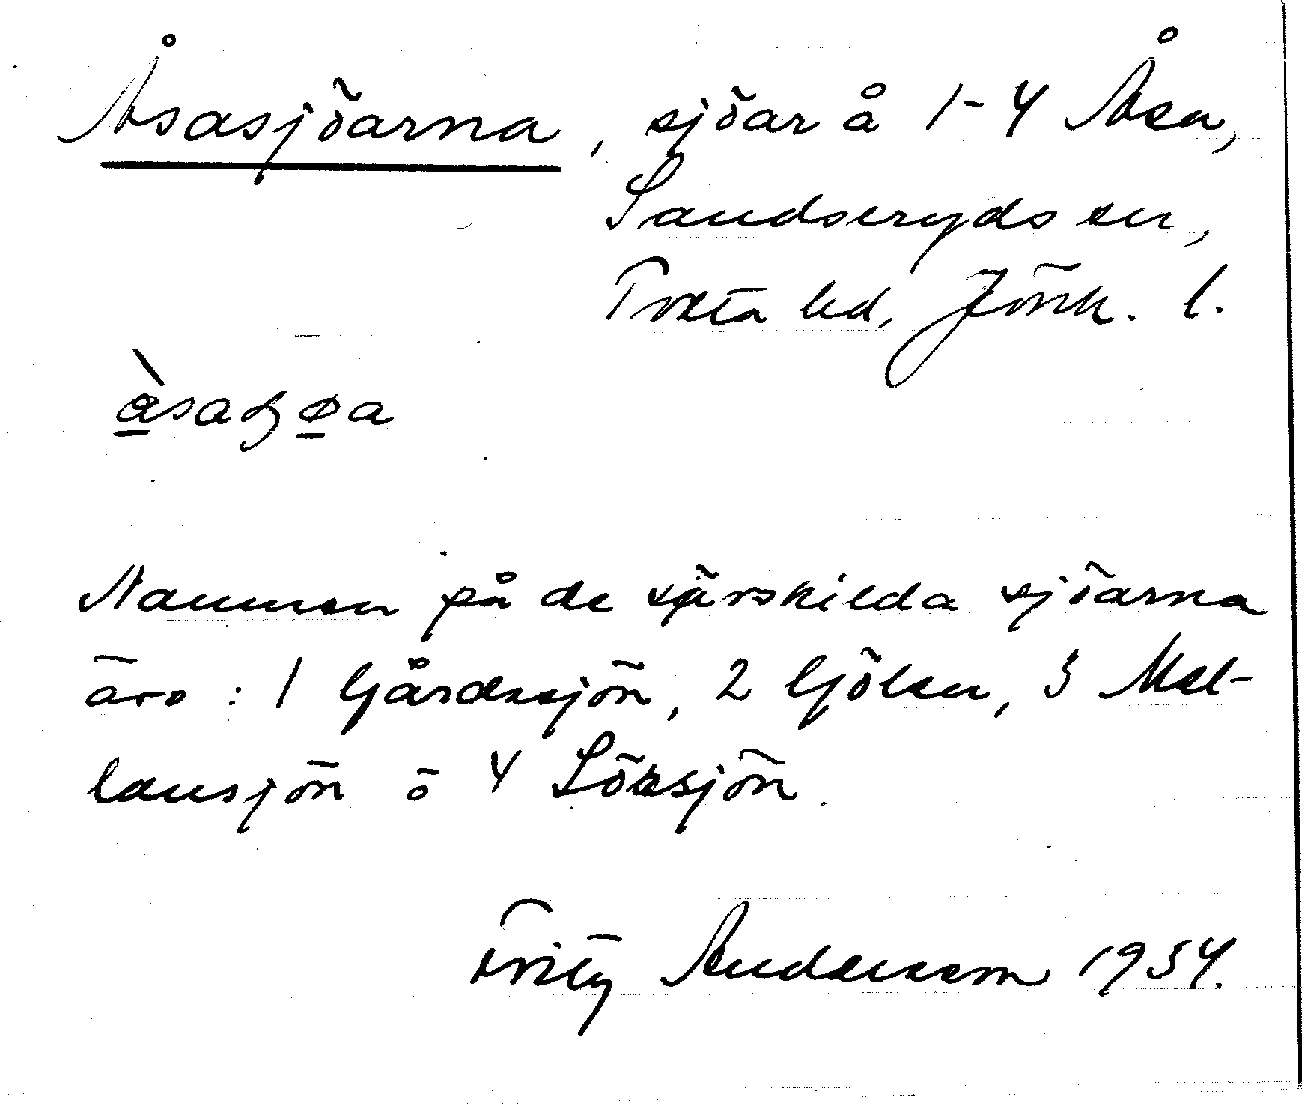 Åsasjöarna, sjöar å 1-4 Åsa,
Sandseryds sn,
Tveta hd, Jönk. l.
Namnen på de särskilda sjöarna
äro: 1 Gårdssjön, 2 Gölen, 3 Mel-
lansjön o 4 Lövsjön.
Fritz Andersson 1934.